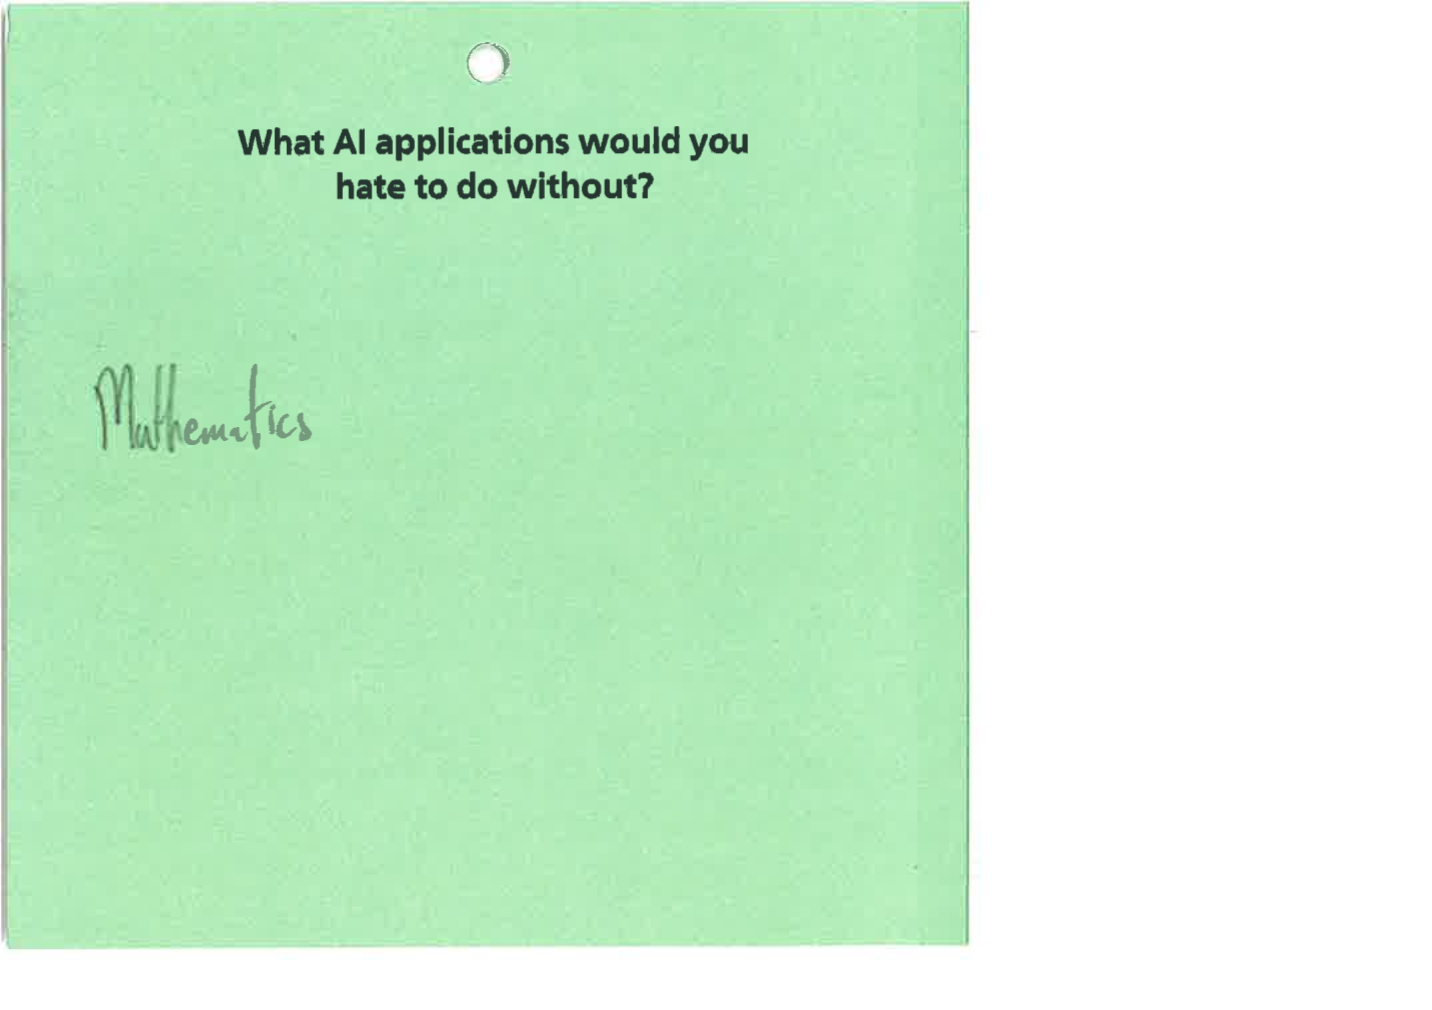 What AI applications would you
hate to do without?
Mathematics